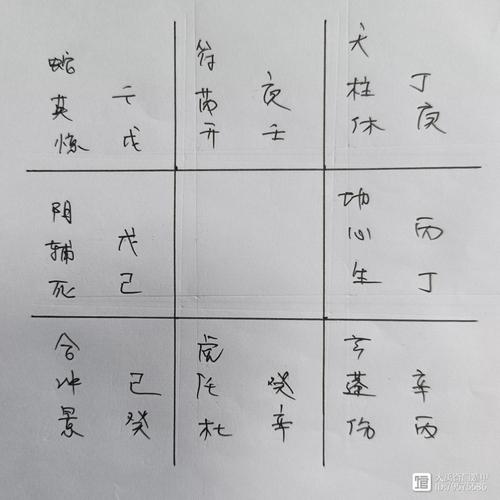 蛇
英 壬
惊 戊
符
芮 庚
开 壬
天
柱 丁
休 庚
阴
辅 戊
死 己
地
心 丙
生 丁
合
冲 己
景 癸
虎
任 癸
杜 辛
玄
蓬 辛
伤 丙
ID:79575586